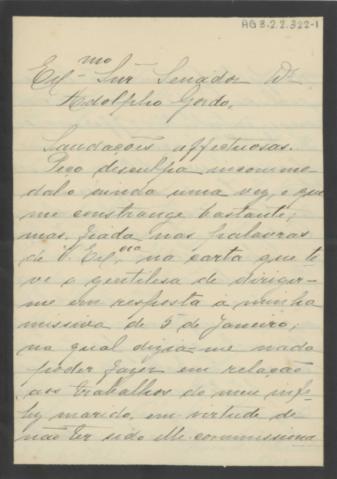 AG 3.2.2.322-1
Exmo Snr Senador Dr
Adolpho Gordo.
Saudações affectuosas.
Peço desculpa incommo-
dal-o ainda uma vez, o que
me constrange bastante;
mas, fiada nas palavras
de V. Excia na carta que te-
ve a gentilesa de dirigir-
me em resposta á minha
missiva de 5 de Janeiro,
na qual dizia-me nada
poder fazer em relação
aos trabalhos do meu infe-
liz marido, em virtude de
não ter sido elle commissiona